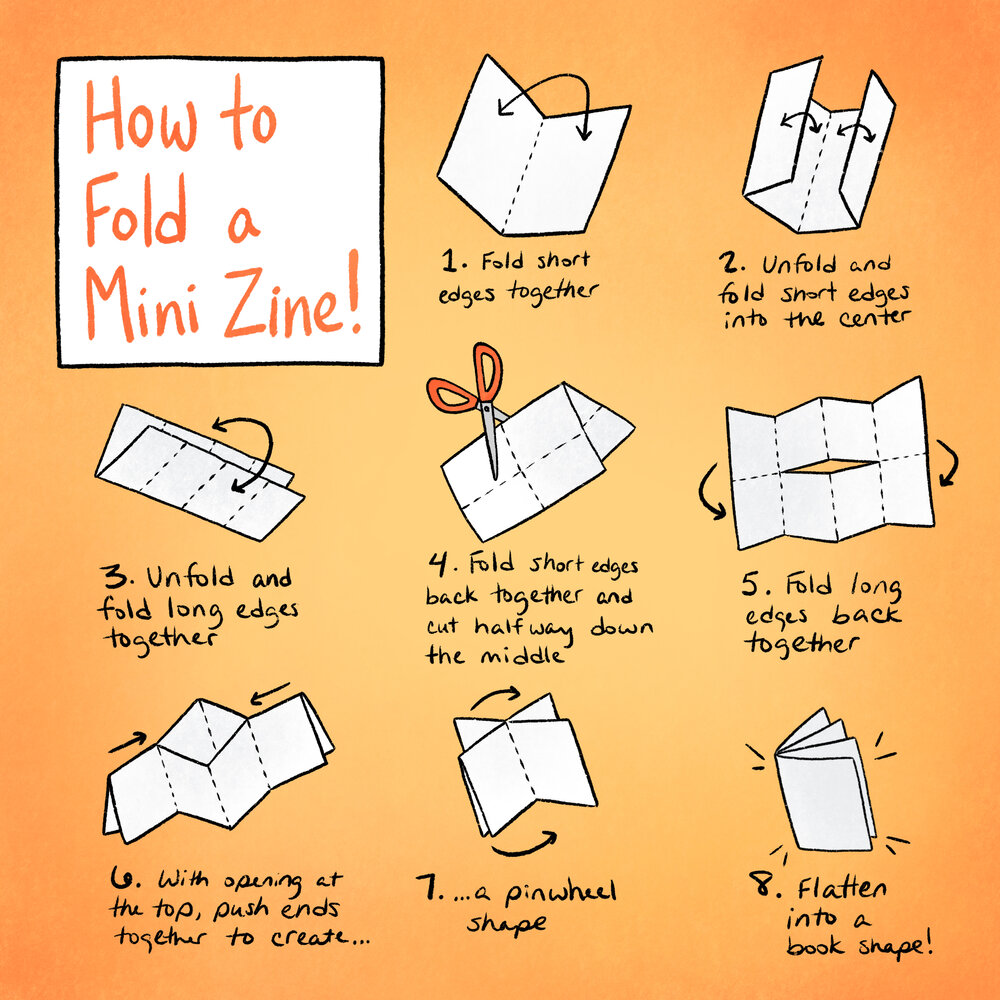 How to
Fold a
Mini Zine!
1. Fold short
edges together
2. Unfold and
fold short edges
into the center
3. Unfold and
fold long edges
together
4. Fold short edges
back together and
cut halfway down
the middle
5. Fold long
edges back
together
6. With opening at
the top, push ends
together to create...
7. ...a pinwheel
shape
8. Flatten
into a
book shape!